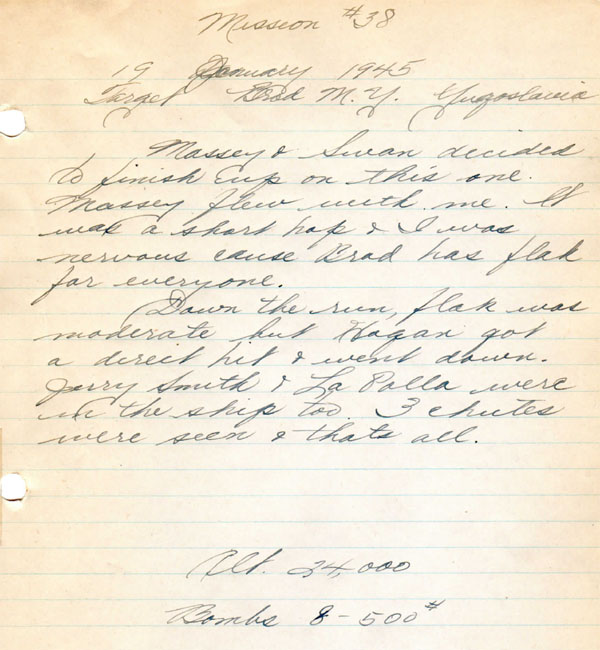 Mission #38
19 January 1945
Target Brod M.Y. Yugoslavia
Massey & Swan decided
to finish up on this one.
Massey flew with me. It
was a short hop & I was
nervous cause Brod has flak
for everyone.
Down the run, flak was
moderate but Hagan got
a direct hit & went down.
Jerry Smith & La Polla were
in the ship too. 3 chutes
were seen & thats all.
Alt. 24,000
Bombs 8-500#